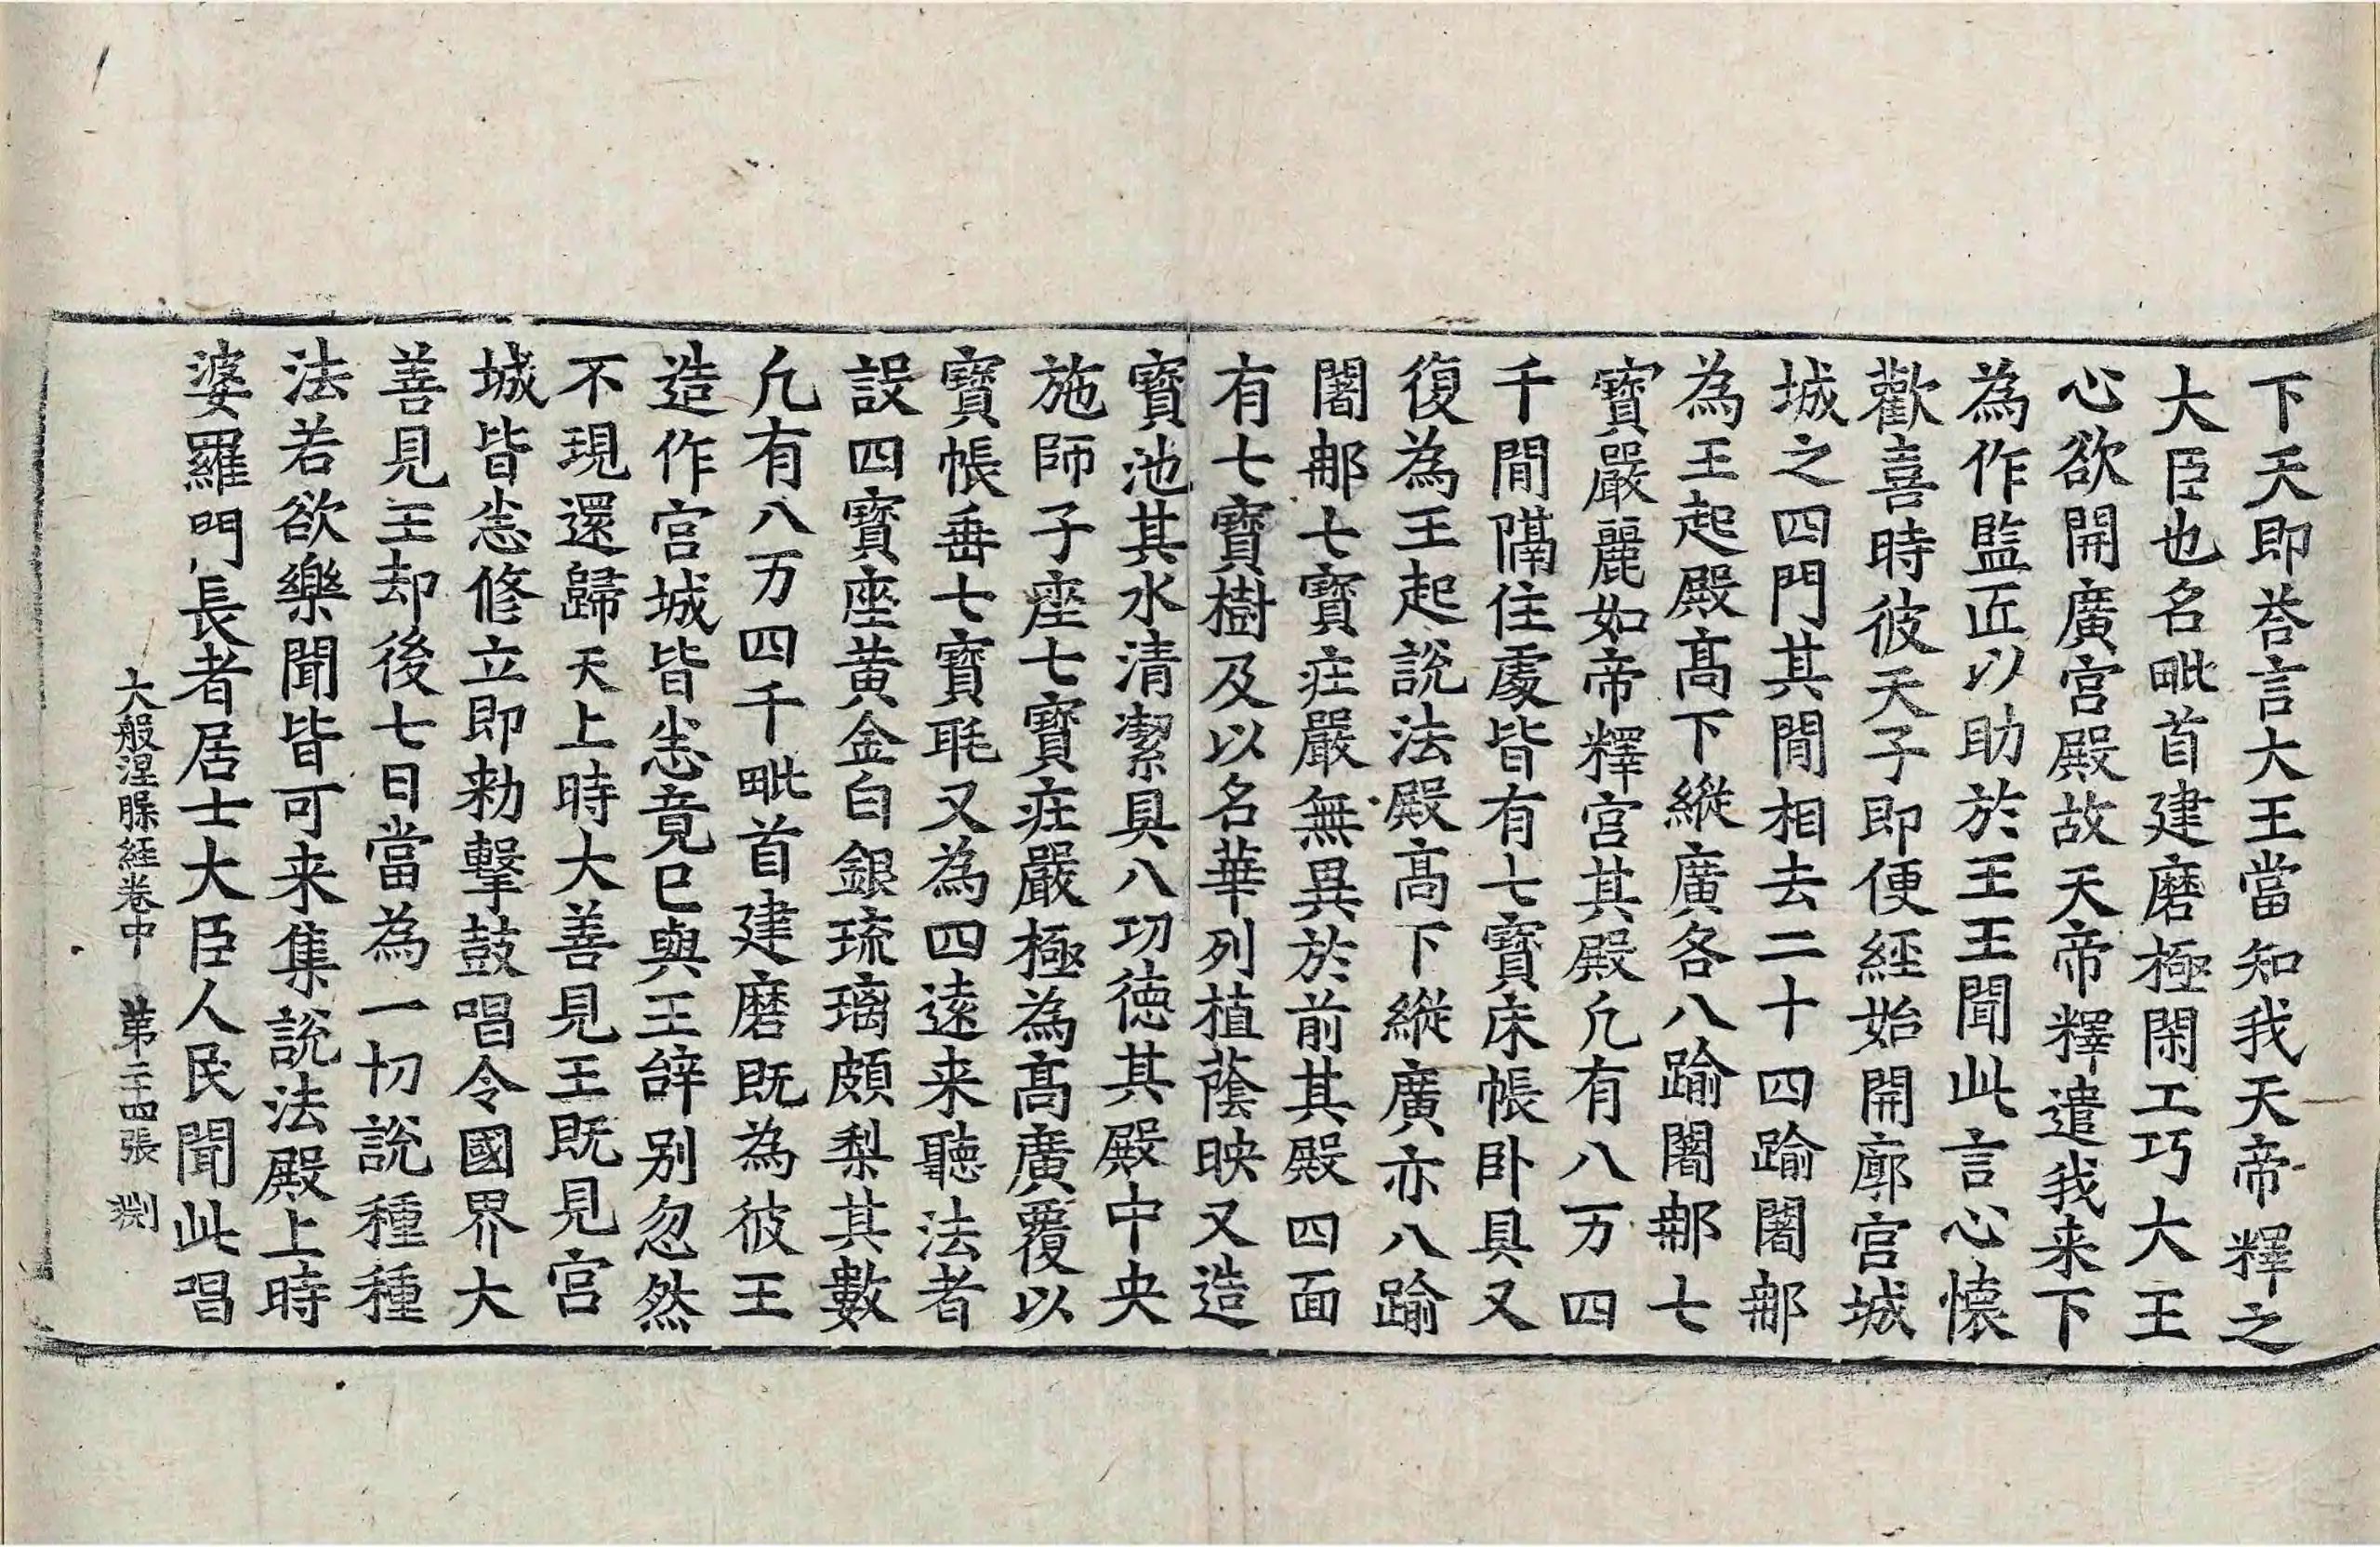 下天即荅言大王當知我天帝釋之
大臣也名毗首建磨極閑工巧大王
心欲開廣宮殿故天帝釋遣我来下
為作監匠以助於王王聞此言心懷
歡喜時彼天子即便經始開廓宮城
城之四門其閒相去二十四踰闍那
為王起殿髙下縱廣各八踰闍那七
寶嚴麗如帝釋宮其殿凢有八万四
千閒隔住處皆有七寶床帳卧具又
復為王起說法殿髙下縱廣亦八踰
闍那七寶莊嚴無異於前其殿四面
有七寶樹及以名華列植蔭映又造
寶池其水清潔具八功德其殿中央
施師子座七寶莊嚴極為髙廣覆以
寶帳垂七寶毦又為四遠来聽法者
設四寶座黃金白銀琉璃頗梨其數
凢有八万四千毗首建磨既為彼王
造作宮城皆悉竟已與王辝别忽然
不現還歸天上時大善見王既見宮
城皆悉修立即勑擊鼓唱令國界大
善見王却後七日當為一切說種種
法若欲樂聞皆可来集說法殿上時
婆羅門長者居士大臣人民聞此唱
大般涅槃經卷中 第二十四張